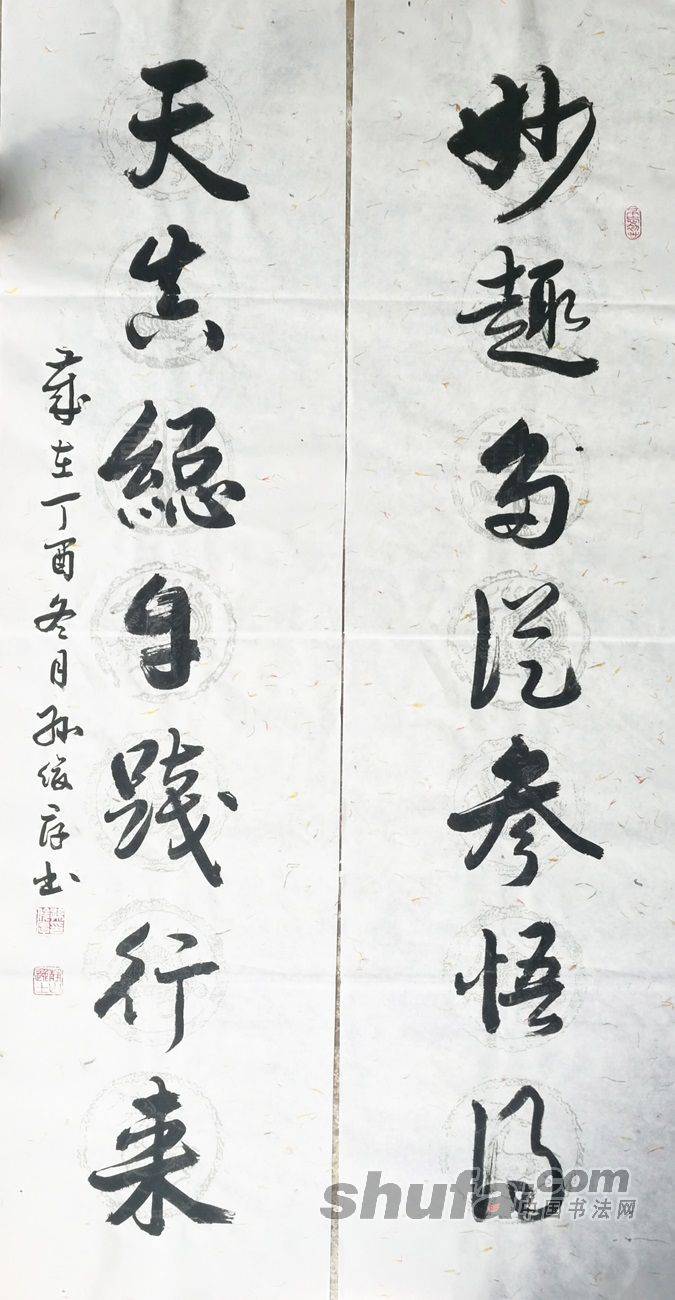 妙趣多從參悟得
天真總自踐行來
歲在丁酉冬月孫俊彦书
shufa.com
中国书法网